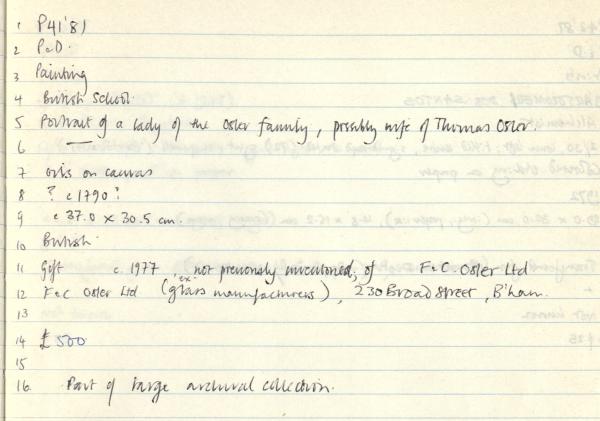 1 P41'81
2 P&D.
3 Painting
4 British School.
5 Portrait of a lady of the Osler family, possibly wife of Thomas Osler.
6 —
7 oils on canvas
8 ? c1790?
9 c 37.0 x 30.5 cm.
10 British.
11 Gift c. 1977, not previously inventoried, of F&C Osler Ltd
12 F&C Osler Ltd (ex glass manufacturers), 230 Broad Street, B'ham.
13
14 £500
15
16. Part of large archival collection.